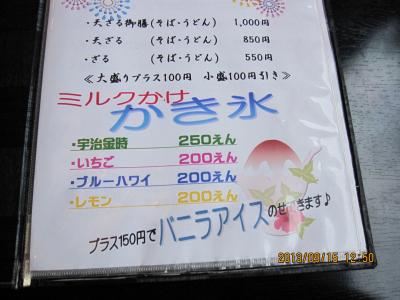 ・天ざる御膳 (そば・うどん) 1,000円
・天ざる (そば・うどん) 850円
・ざる (そば・うどん) 550円
≪大盛りプラス100円 小盛100円引き≫
ミルクかけ
かき氷
・宇治金時 250えん
・いちご 200えん
・ブルーハワイ 200えん
・レモン 200えん
プラス150円でバニラアイスのせできます♪
2013/09/15 12:50